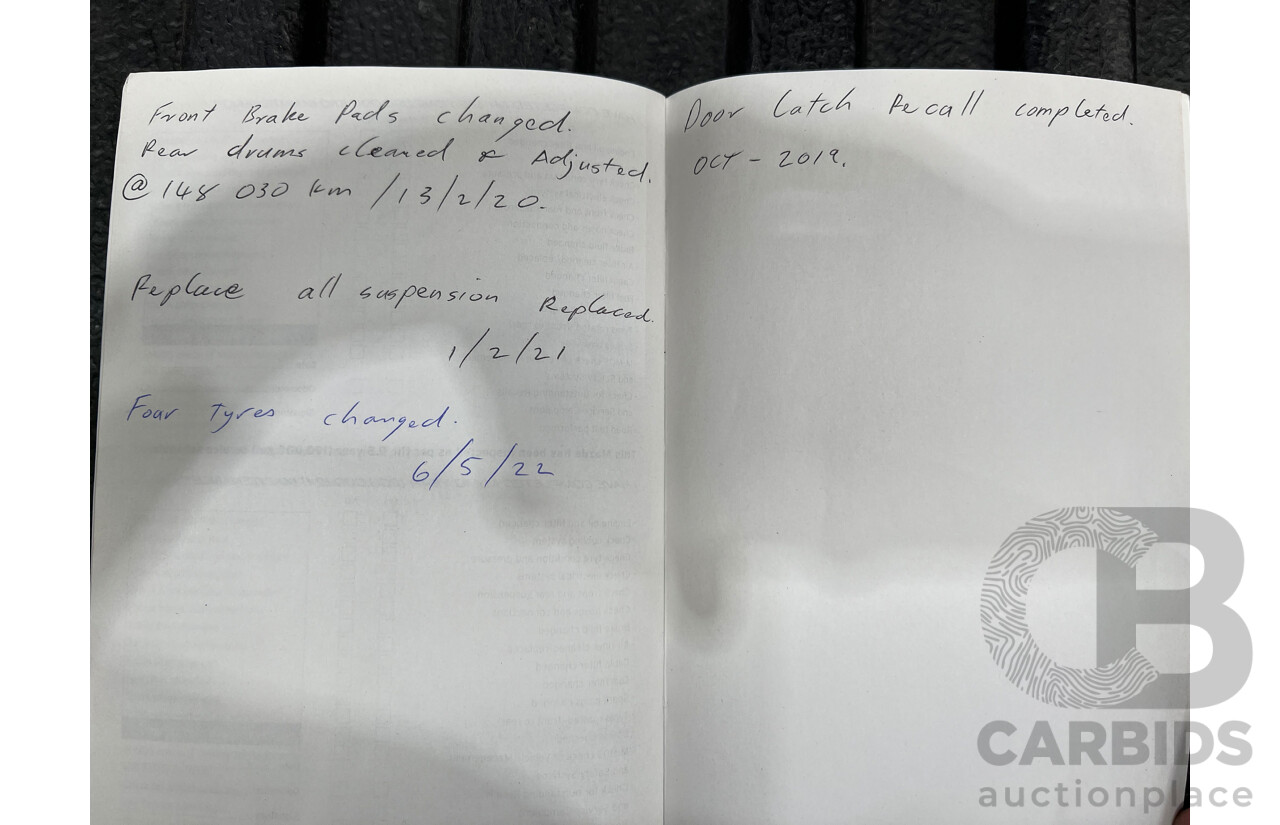 Front Brake Pads changed.
Rear drums cleaned & Adjusted.
@ 148 030 km / 13/2/20.
Replace all suspension Replaced.
1/2/21
Four Tyres changed.
6/5/22
Door Latch Recall completed.
OCT - 2019.
CB
CARBIDS
auctionplace